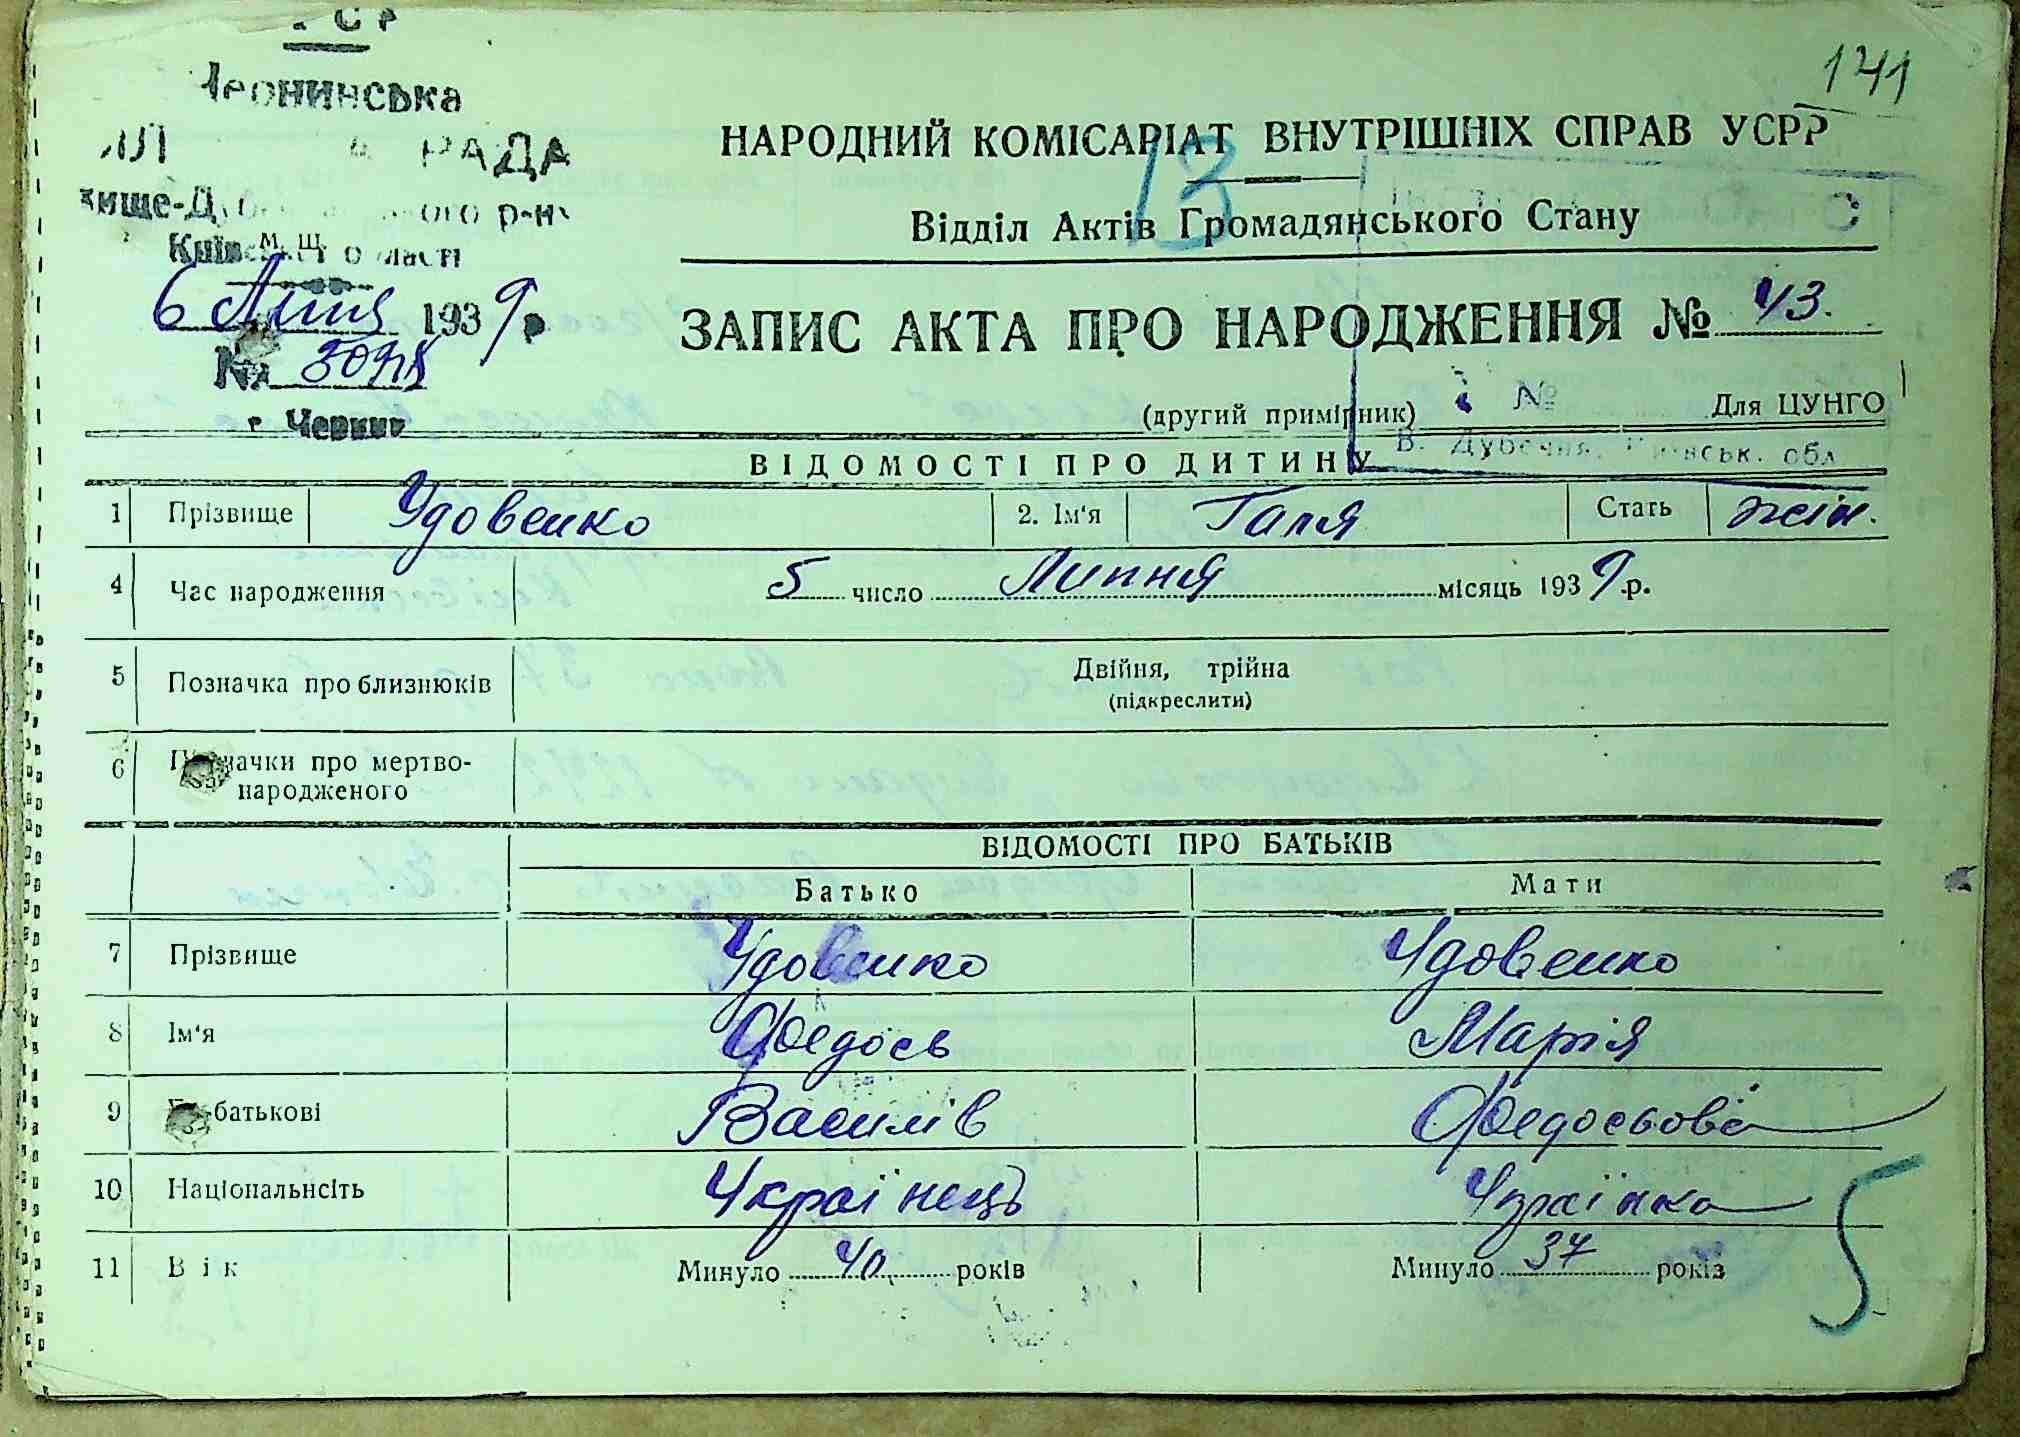 141
РАДА
р-н
Київської області
6 Липня 1939 р
№
НАРОДНИЙ КОМІСАРІАТ ВНУТРІШНІХ СПРАВ УСРР
13
Відділ Актів Громадянського Стану
ЗАПИС АКТА ПРО НАРОДЖЕННЯ № 43.
(другий примірник) № Для ЦУНГО
В. Дубечня, Київськ. обл
ВІДОМОСТІ ПРО ДИТИНУ
1 Прізвище Удовенко 2. Ім'я Галя Стать жін.
4 Час народження 5 число Липня місяць 1939 р.
5 Позначка про близнюків Двійня, трійна
(підкреслити)
6 Позначки про мертво-
народженого
ВІДОМОСТІ ПРО БАТЬКІВ
Батько Мати
7 Прізвище Удовенко Удовенко
8 Ім'я Федось Марія
9 По-батькові Василів Федосьова
10 Національнсіть Украінець Украінка
11 Вік Минуло 40 років Минуло 37 років
5